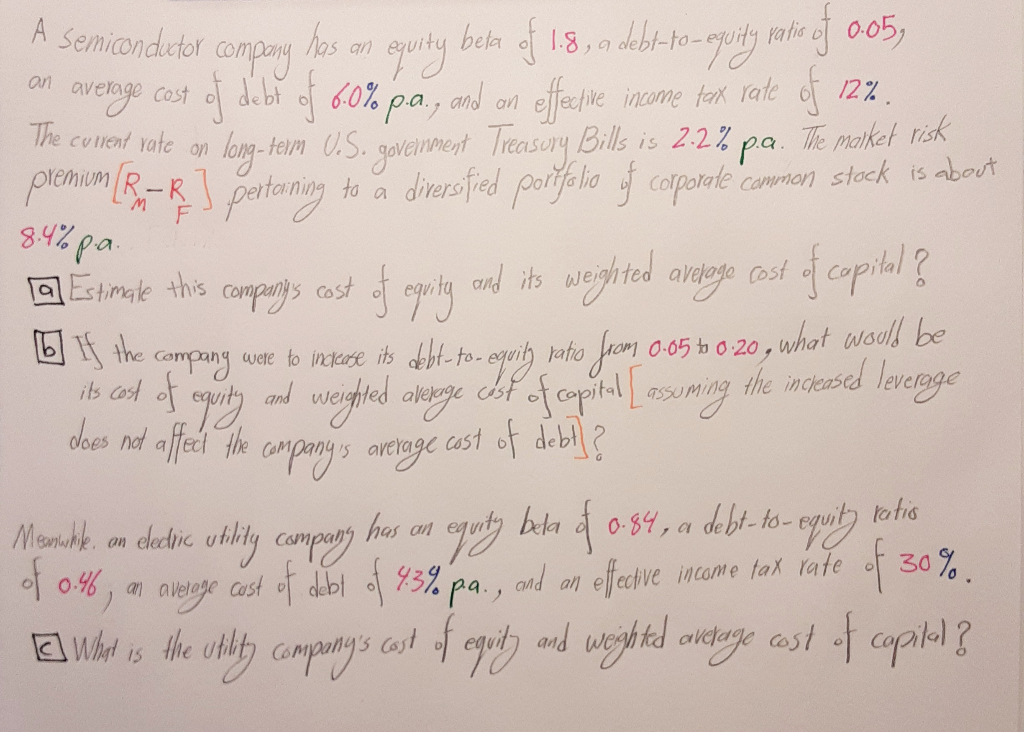 A semiconductor company has an equity beta of 1.8, a debt-to-equity ratio of 0.05,
an average cost of debt of 6.0% p.a., and an effective income tax rate of 12%.
The current rate on long-term U.S. government Treasury Bills is 2.2% p.a. The market risk
premium [R_M - R_F] pertaining to a diversified portfolio of corporate common stock is about
8.4% p.a.
a Estimate this company's cost of equity and its weighted average cost of capital?
b If the company were to increase its debt-to-equity ratio from 0.05 to 0.20, what would be
its cost of equity and weighted average cost of capital [assuming the increased leverage
does not affect the company's average cost of debt]?
Meanwhile, an electric utility company has an equity beta of 0.84, a debt-to-equity ratio
of 0.46, an average cost of debt of 4.3% pa., and an effective income tax rate of 30%.
c What is the utility company's cost of equity and weighted average cost of capital?